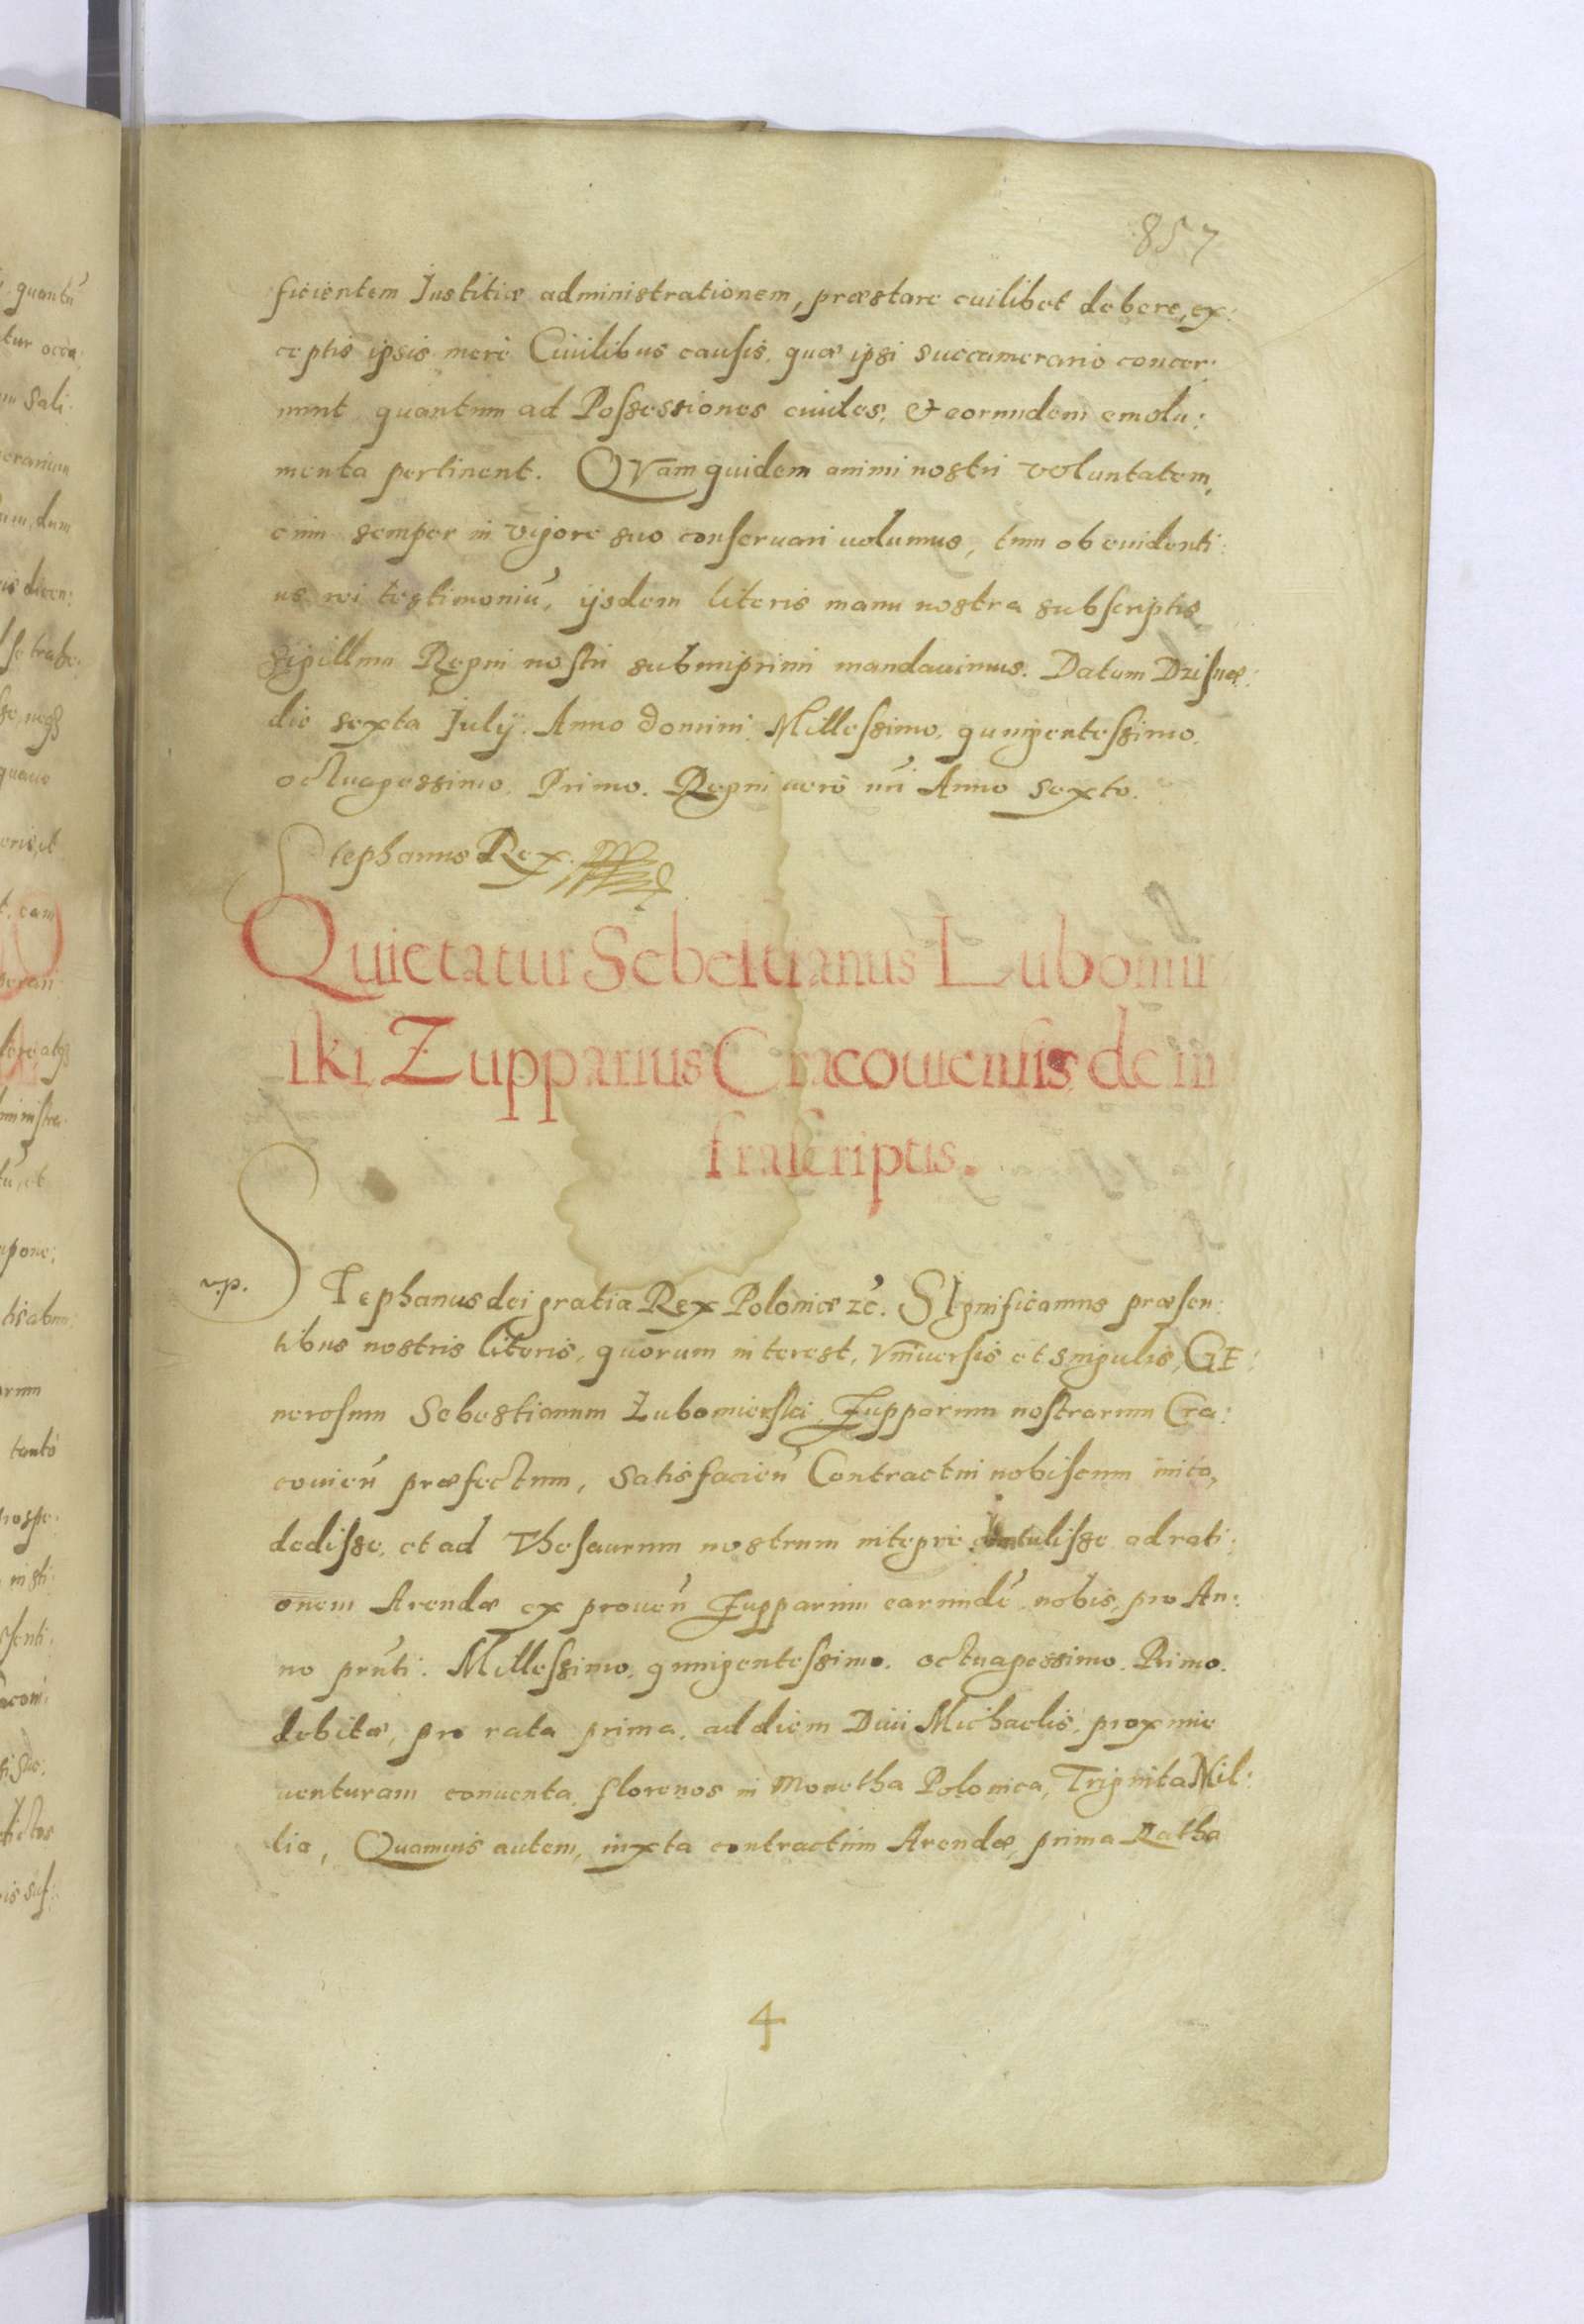 857
ficientem Justitiæ administrationem, præstare cuilibet debere, ex:
ceptis ipsis merè Ciuilibus causis, quæ ipsi Succamerario concer:
nunt quantum ad Possessiones ciuiles, & eorundem emolu:
menta pertinent. QVam quidem animi nostri voluntatem,
cum semper in vigore suo conseruari uolumus, tum ob euidenti:
us rei testimoniū, ijsdem literis manu nostra subscriptis
Sigillum Regni nostri submiprimi mandauimus. Datum Dzisnæ:
die sexta July. Anno domini Millessimo, quingentessimo,
octuagessimo, Primo. Regni uerò nri Anno sexto.
Stephanus Rex.
Quietatur Sebestianus Lubomir
ski Zupparius Cracouiensis de in
frascriptis.
STephanus dei gratia Rex Poloniæ zc̄. SIgnificamus præsen:
v.p.
tibus nostris literis, quorum interest, Vniuersis et singulis, GE:
nerosum Sebestianum Lubomierski Zupparum nostrarum Cra:
couien̄ præfectum, Satisfacien̄ Contractui nobiscum inito,
dedisse, et ad Thesaurum nostrum integrè intulisse ad rati:
onem Arendæ ex prouen̄ Zupparum earundē nobis, pro An:
no prn̄ti: Millessimo, quingentessimo, octuagessimo. Primo.
debitæ, pro rata prima, ad diem Diui Michaelis, proxime
venturam conuenta, florenos in Monetha Polonica, Triginta Mil:
lia, Quamuis autem, iuxta contractum Arendæ, prima Ratha
4